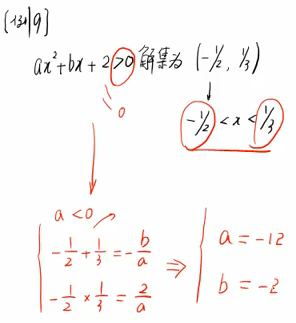 [例9]
ax²+bx+2>0 解集为 (-1/2, 1/3)
=0
-1/2 < x < 1/3
a<0
-1/2+1/3=-b/a
-1/2×1/3=2/a
⇒
a=-12
b=-2